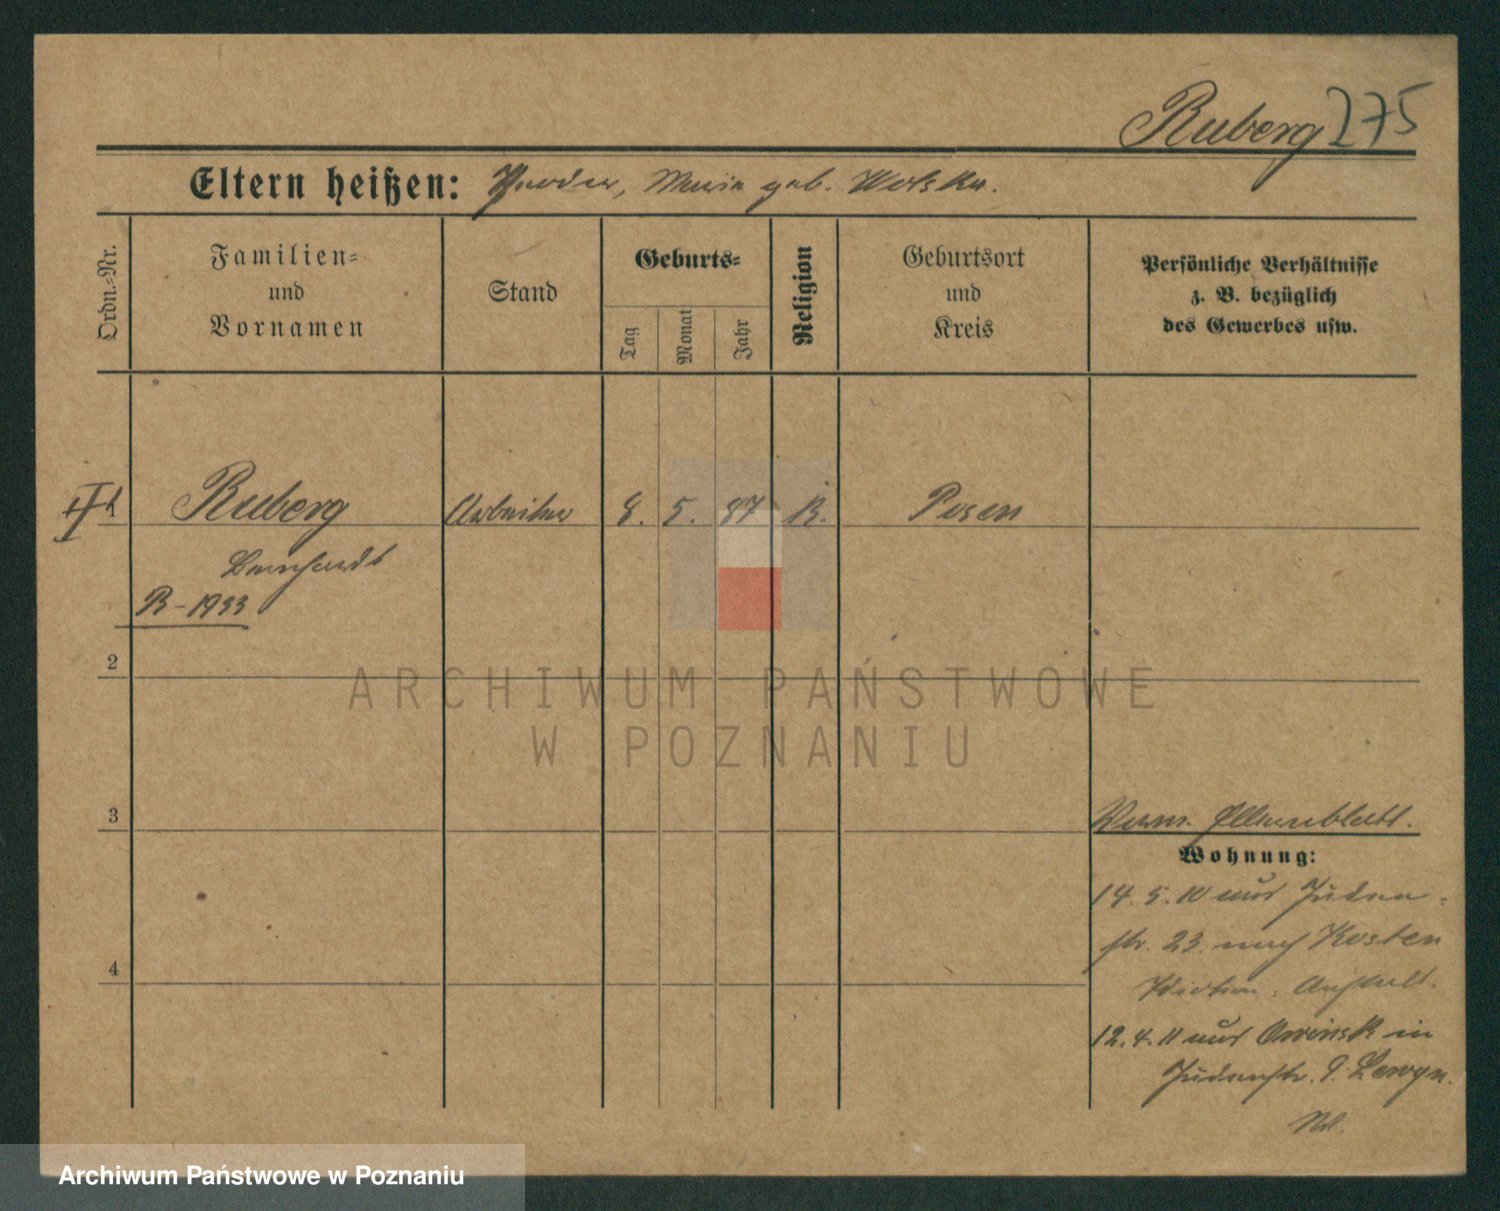 Ruberg 275
Eltern heißen: Maria geb.
Ordn.-Nr.
Familien-
und
Vornamen
Stand
Geburts-
Tag
Monat
Jahr
Religion
Geburtsort
und
Kreis
Persönliche Verhältnisse
z. B. bezüglich
des Gewerbes usw.
Ruberg Arbeiter 8. 5. 87 K. Posen
Bernhardt
R-1933
2
3
4
Verm. Elternblatt.
Wohnung:
14. 5. 10 aus Juden-
str. 23. nach Kosten
Idioten. Anstalt.
12. 4. 11 aus Owinsk in
Judenstr. 9.
ARCHIWUM PAŃSTWOWE
W POZNANIU
Archiwum Państwowe w Poznaniu